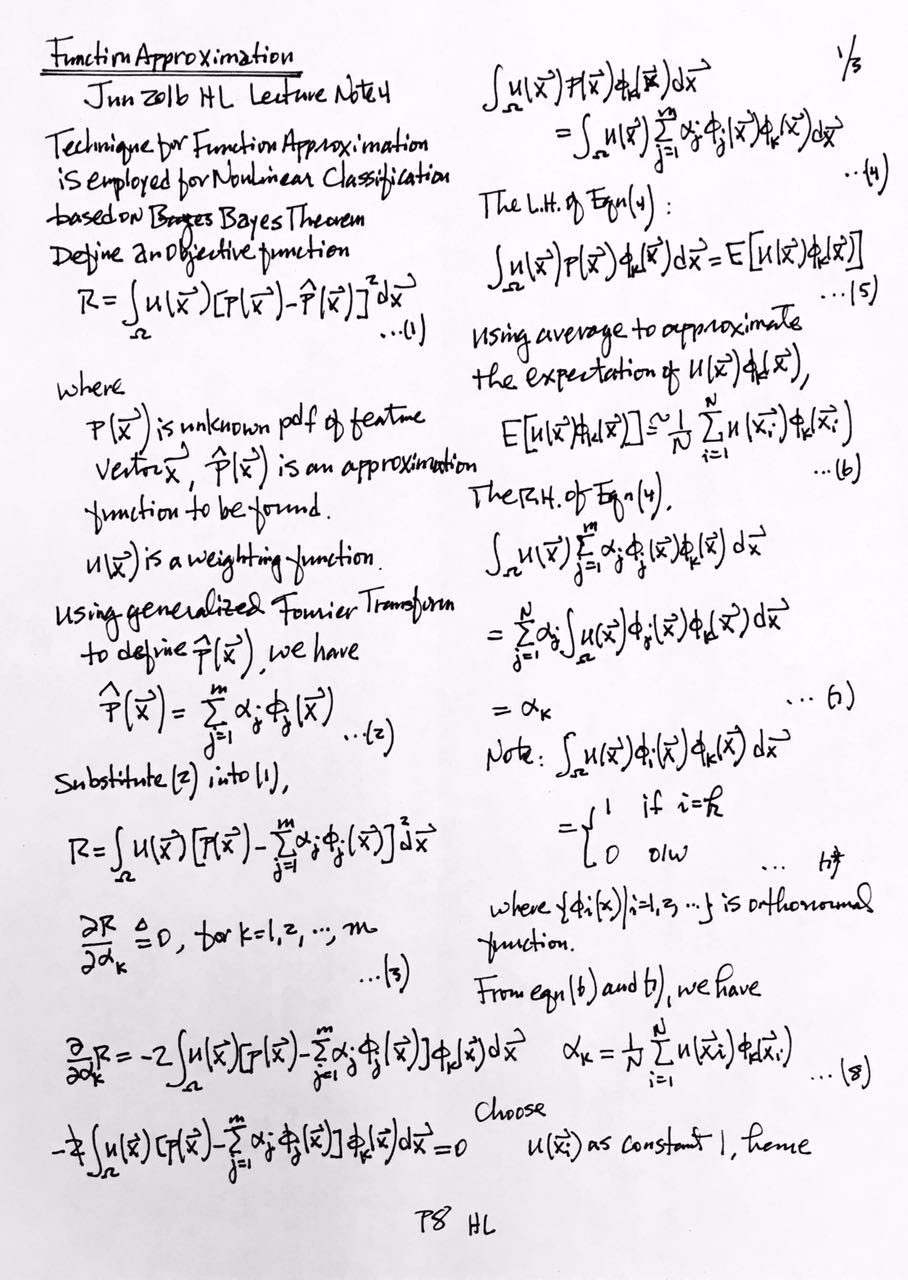 Function Approximation
Jun 2016 HL Lecture Note 4
Technique for Function Approximation
is employed for Nonlinear Classification
based on Bayes Theorem
Define an objective function
R = ∫_Ω u(x⃗) [p(x⃗) - p̂(x⃗)]² dx⃗
...(1)
where
p(x⃗) is unknown pdf of feature
vector x⃗, p̂(x⃗) is an approximation
function to be found.
u(x⃗) is a weighting function.
Using generalized Fourier Transform
to define p̂(x⃗), we have
p̂(x⃗) = Σ_{j=1}^{m} α_j φ_j(x⃗) ...(2)
Substitute (2) into (1),
R = ∫_Ω u(x⃗) [p(x⃗) - Σ_{j=1}^{m} α_j φ_j(x⃗)]² dx⃗
∂R/∂α_k ≜ 0, for k=1, 2, ..., m
...(3)
∂/∂α_k R = -2 ∫_Ω u(x⃗) [p(x⃗) - Σ_{j=1}^{m} α_j φ_j(x⃗)] φ_k(x⃗) dx⃗
-2 ∫_Ω u(x⃗) [p(x⃗) - Σ_{j=1}^{m} α_j φ_j(x⃗)] φ_k(x⃗) dx⃗ = 0
1/3
∫_Ω u(x⃗) p(x⃗) φ_k(x⃗) dx⃗
= ∫_Ω u(x⃗) Σ_{j=1}^{m} α_j φ_j(x⃗) φ_k(x⃗) dx⃗
...(4)
The L.H. of Eqn (4) :
∫_Ω u(x⃗) p(x⃗) φ_k(x⃗) dx⃗ = E[u(x⃗) φ_k(x⃗)]
...(5)
Using average to approximate
the expectation of u(x⃗) φ_k(x⃗),
E[u(x⃗) φ_k(x⃗)] ≅ 1/N Σ_{i=1}^{N} u(x⃗_i) φ_k(x⃗_i)
...(6)
The R.H. of Eqn (4),
∫_Ω u(x⃗) Σ_{j=1}^{m} α_j φ_j(x⃗) φ_k(x⃗) dx⃗
= Σ_{j=1}^{N} α_j ∫_Ω u(x⃗) φ_j(x⃗) φ_k(x⃗) dx⃗
= α_k ...(7)
Note: ∫_Ω u(x⃗) φ_i(x⃗) φ_k(x⃗) dx⃗
= { 1 if i=k
0 o/w
...
where {φ_i(x) | i=1, 2, ...} is orthonormal
function.
From eqn (6) and (7), we have
α_k = 1/N Σ_{i=1}^{N} u(x⃗_i) φ_k(x⃗_i)
...(8)
Choose
u(x⃗_i) as constant 1, hence
P8 HL